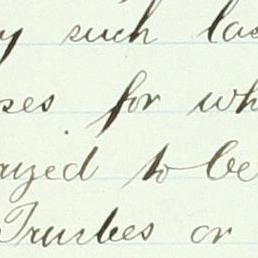 y such las
ses for wh
ayed to be
Trustees or